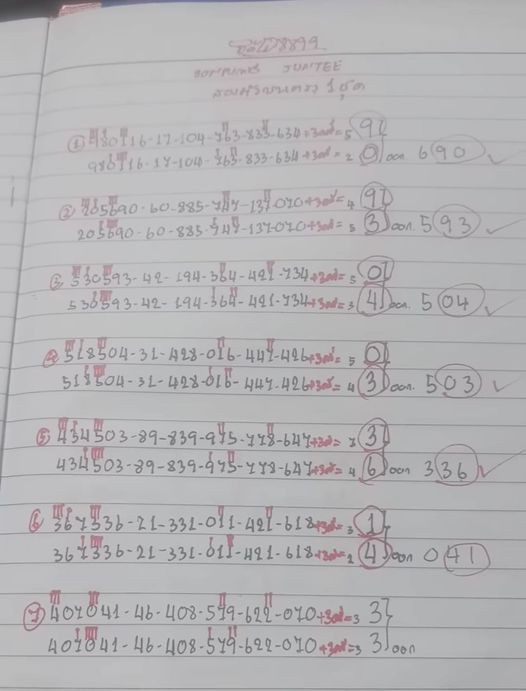 SOMPHING JUNTEE
① 980916-17-104-763-833-634+3ตัว=5 9
980916-17-104-763-833-634+3ตัว=2 0 ออก 690
② 205690-60-885-747-137-070+3ตัว=4 9
205690-60-885-747-137-070+3ตัว=5 3 ออก 593
③ 530593-42-194-364-421-734+3ตัว=5 0
530593-42-194-364-421-734+3ตัว=3 4 ออก 504
④ 518504-31-428-016-447-426+3ตัว=5 0
518504-31-428-016-447-426+3ตัว=4 3 ออก 503
⑤ 434503-89-839-975-778-647+3ตัว=7 3
434503-89-839-975-778-647+3ตัว=4 6 ออก 336
⑥ 367336-21-331-011-421-618+3ตัว=3 1
367336-21-331-011-421-618+3ตัว=2 4 ออก 041
⑦ 407041-46-408-579-622-070+3ตัว=3 3
407041-46-408-579-622-070+3ตัว=3 3 ออก